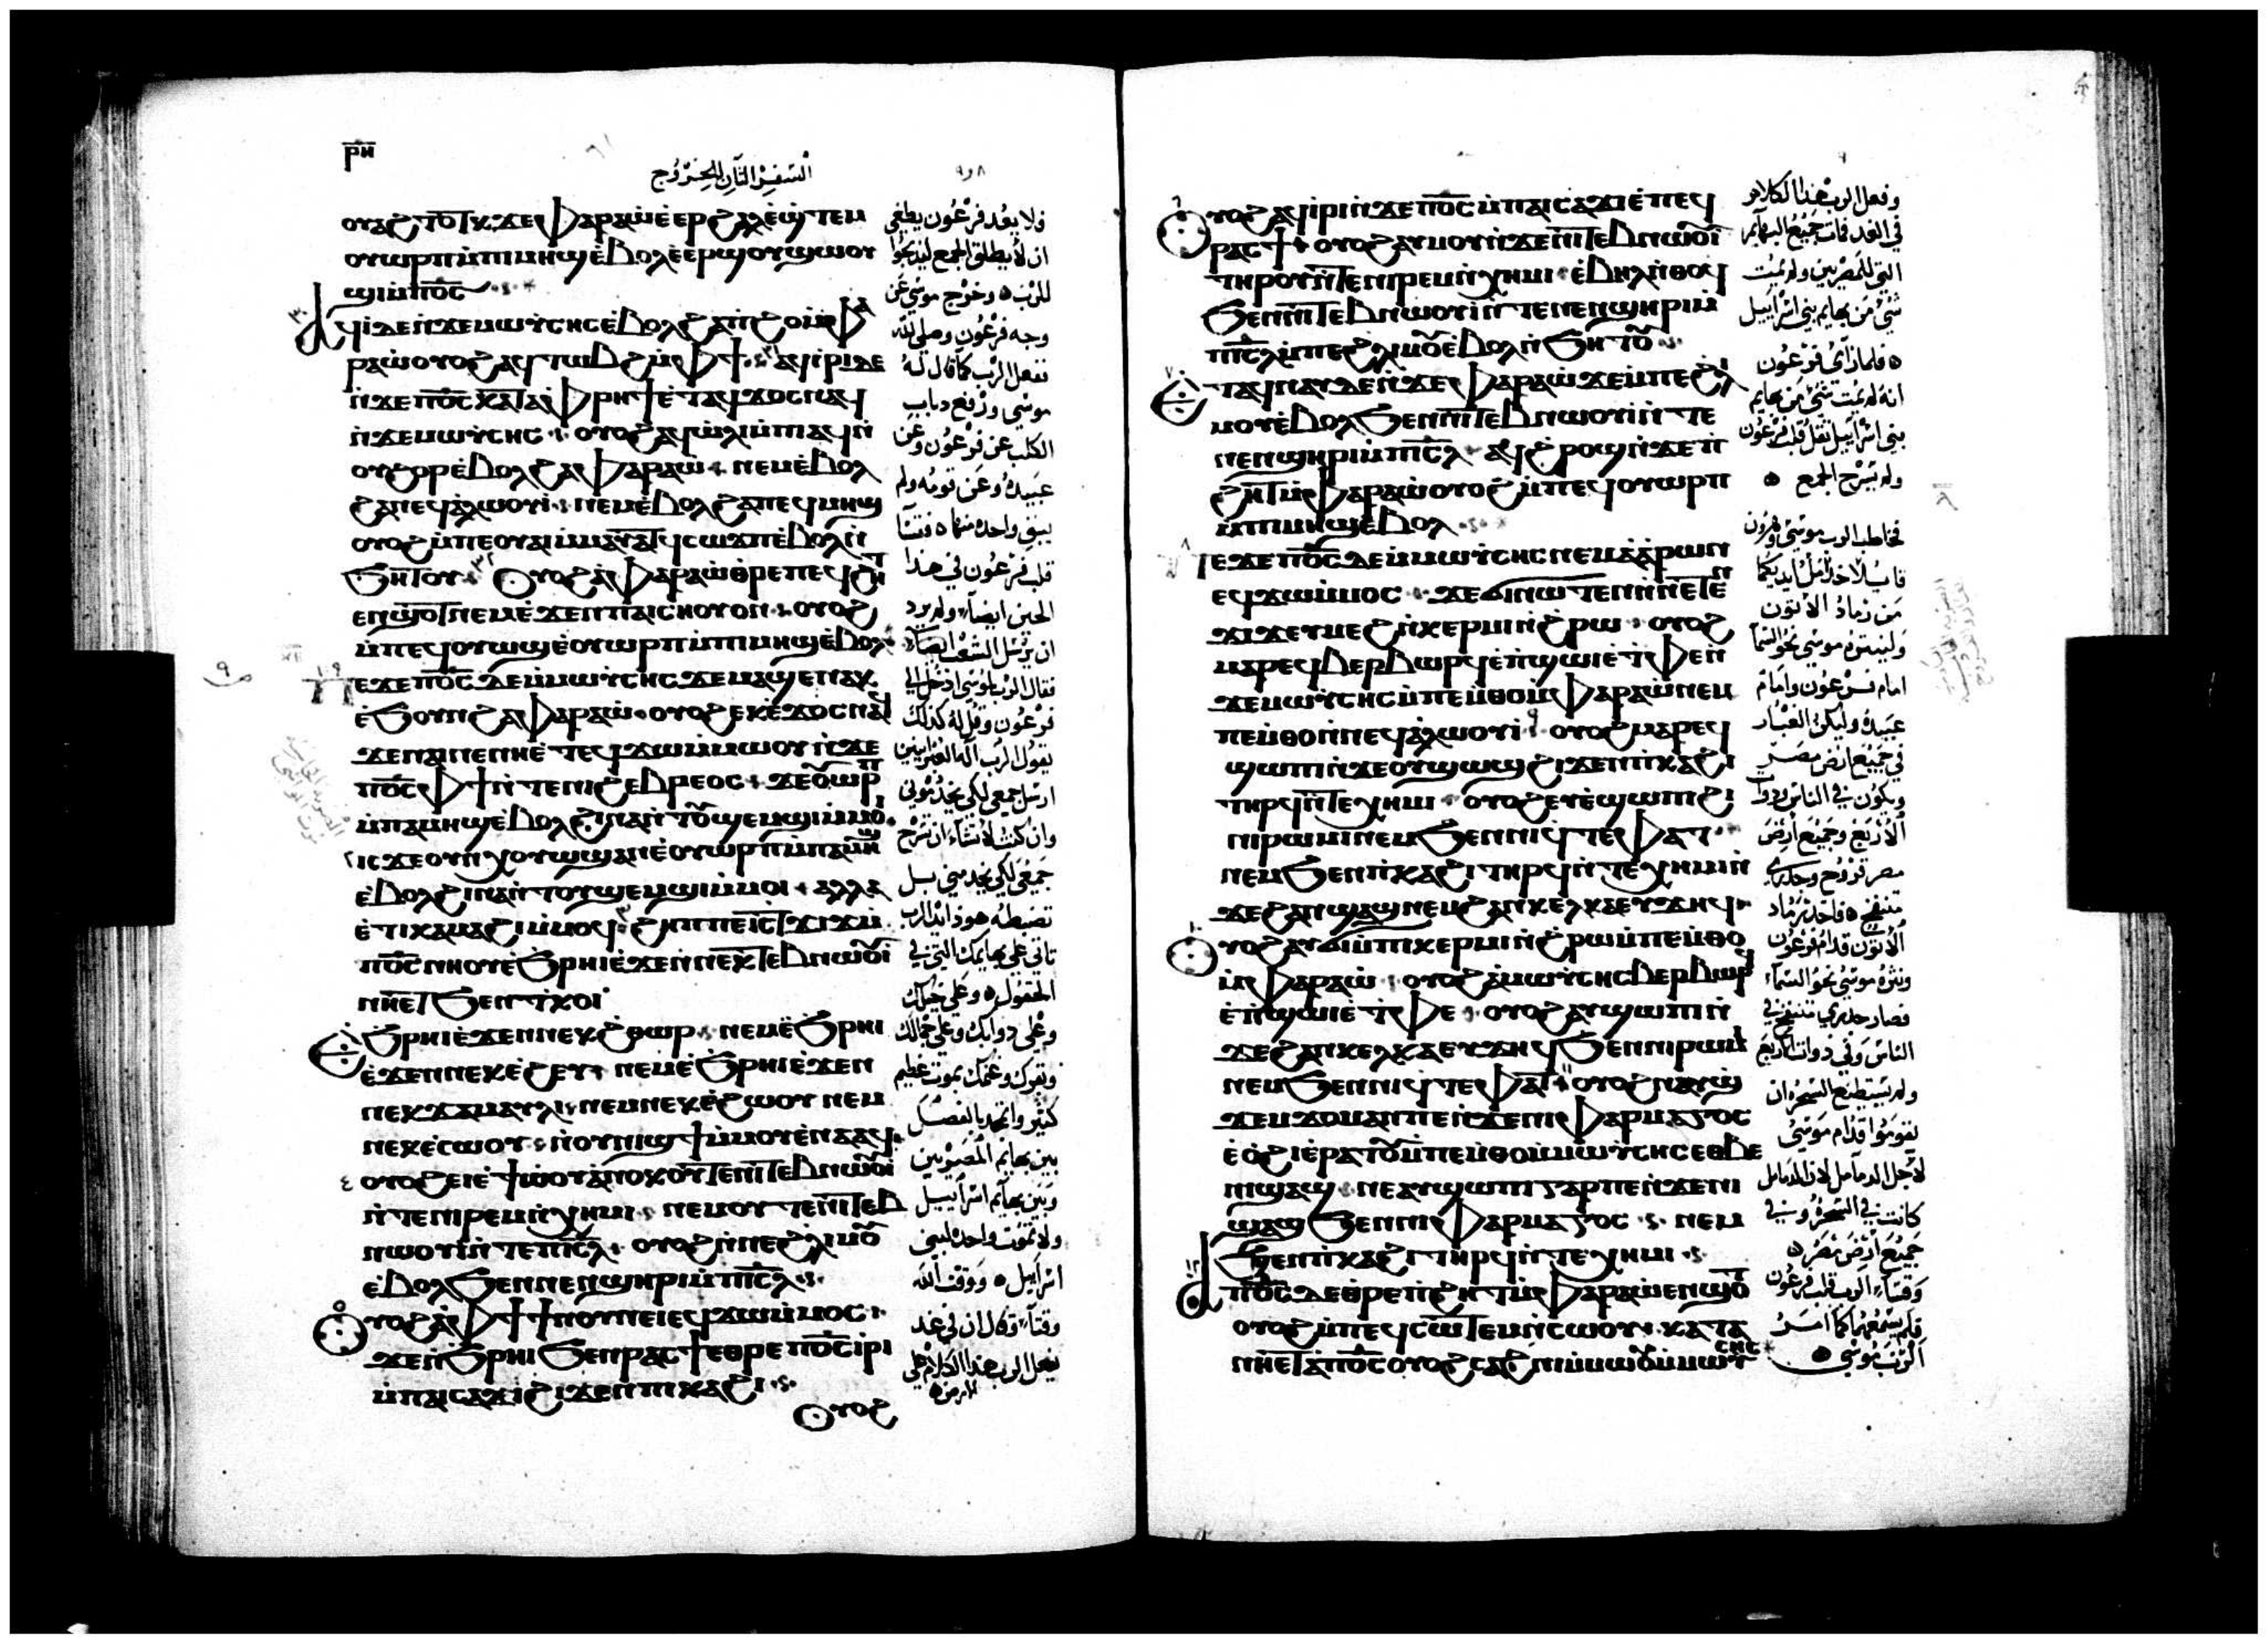 ⲣⲏ
السفر الثاني الخروج
٨ و ٩
ⲟⲩⲁϩⲧⲟⲧϥ ϫⲉ ⲫⲁⲣⲁⲱ ⲉⲉⲣϩⲁⲗ ⲉϣⲧⲉⲙ
ⲟⲩⲱⲣⲡ ⲙⲡⲓⲙⲏϣ ⲉⲃⲟⲗ ⲉⲉⲣϣⲟⲩϣⲱⲟⲩ
ϣⲓ ⲙⲡⲟ̅ⲥ̅
ⲁϥⲓ ⲇⲉ ⲛϫⲉ ⲙⲱⲩⲥⲏⲥ ⲉⲃⲟⲗ ϩⲁ ⲡϩⲟ ⲙⲫⲁ
ⲣⲁⲱ ⲟⲩⲟϩ ⲁϥⲧⲱⲃϩ ⲙⲫϯ ⲁϥⲓⲣⲓ ⲇⲉ
ⲛϫⲉ ⲡⲟ̅ⲥ̅ ⲕⲁⲧⲁ ⲫⲣⲏϯ ⲉⲧⲁϥϫⲟⲥ ⲛⲁϥ
ⲛϫⲉ ⲙⲱⲩⲥⲏⲥ ⲟⲩⲟϩ ⲁϥⲱⲗⲓ ⲙⲡⲓⲁϥ ⲛ
ⲟⲩϩⲟⲣ ⲉⲃⲟⲗ ϩⲁ ⲫⲁⲣⲁⲱ ⲛⲉⲙ ⲉⲃⲟⲗ
ϩⲁ ⲛⲉϥⲁⲗⲱⲟⲩⲓ ⲛⲉⲙ ⲉⲃⲟⲗ ϩⲁ ⲡⲉϥⲙⲏϣ
ⲟⲩⲟϩ ⲙⲡⲉ ⲟⲩⲁⲓ ⲙⲙⲁⲩⲁⲧϥ ⲥⲱϫⲡ ⲉⲃⲟⲗ ⲛ
ϧⲏⲧⲟⲩ ⲟⲩⲟϩ ⲁ ⲫⲁⲣⲁⲱ ⲑⲣⲉ ⲡⲉϥϩⲏⲧ
ⲉⲛϣⲟⲧ ⲛⲉⲙ ⲉϫⲉⲛ ⲡⲁⲓⲥⲏⲟⲩ ⲟⲛ ⲟⲩⲟϩ
ⲙⲡⲉϥⲟⲩⲱϣ ⲉⲟⲩⲱⲣⲡ ⲙⲡⲓⲙⲏϣ ⲉⲃⲟⲗ
ⲡⲉϫⲉ ⲡⲟ̅ⲥ̅ ϫⲉ ⲙⲙⲱⲩⲥⲏⲥ ϫⲉ ⲙⲁϣⲉ ⲛⲁⲕ
ⲉϧⲟⲩⲛ ϩⲁ ⲫⲁⲣⲁⲱ ⲟⲩⲟϩ ⲉⲕⲉϫⲟⲥ ⲛⲁϥ
ϫⲉ ⲛⲁⲓ ⲛⲉ ⲛⲏ ⲉⲧⲉϥϫⲱ ⲙⲙⲱⲟⲩ ⲛϫⲉ
ⲡⲟ̅ⲥ̅ ⲫϯ ⲛⲧⲉ ⲛⲓϩⲉⲃⲣⲉⲟⲥ ϫⲉ ⲟⲩⲱⲣⲡ
ⲙⲡⲁⲙⲏϣ ⲉⲃⲟⲗ ϩⲓⲛⲁ ⲛⲧⲟⲩϣⲉⲙϣⲓ ⲙⲙⲟⲓ
ⲓⲥϫⲉ ⲟⲩⲛ ⲭⲟⲩⲱϣ ⲁⲛ ⲉⲟⲩⲱⲣⲡ ⲙⲡⲁⲙⲏϣ
ⲉⲃⲟⲗ ϩⲓⲛⲁ ⲛⲧⲟⲩϣⲉⲙϣⲓ ⲙⲙⲟⲓ ⲁⲗⲗⲁ
ⲉⲧⲓ ⲕⲁⲙⲁϩⲓ ⲙⲙⲟϥ ϩⲏⲡⲡⲉ ⲓⲥ ⲧϫⲓϫ ⲙ
ⲡⲟ̅ⲥ̅ ⲛⲏⲟⲩ ⲉϩⲣⲏⲓ ⲉϫⲉⲛ ⲛⲉⲕⲧⲉⲃⲛⲱⲟⲩⲓ
ⲛⲏ ⲉⲧϧⲉⲛ ⲧⲕⲟⲓ
ⲉϩⲣⲏⲓ ⲉϫⲉⲛ ⲛⲉⲕϩⲑⲱⲣ ⲛⲉⲙ ⲉϩⲣⲏⲓ
ⲉϫⲉⲛ ⲛⲉⲕⲉϩⲉⲩ ⲛⲉⲙ ⲉϩⲣⲏⲓ ⲉϫⲉⲛ
ⲛⲉⲕϫⲁⲙⲁⲩⲗⲓ ⲛⲉⲙ ⲛⲉⲕⲉϩⲱⲟⲩ ⲛⲉⲙ
ⲛⲉⲕⲉⲥⲱⲟⲩ ⲛⲟⲩⲛⲓϣϯ ⲙⲙⲟⲩ ⲉⲛⲁⲁϥ
ⲟⲩⲟϩ ⲉⲓⲉϯ ⲱⲟⲩ ⲁⲛⲟⲕ ⲟⲩⲧⲉ ⲛⲓⲧⲉⲃⲛⲱⲟⲩⲓ
ⲛⲧⲉ ⲛⲓⲣⲉⲙⲛⲭⲏⲙⲓ ⲛⲉⲙ ⲟⲩⲧⲉ ⲛⲓⲧⲉⲃ
ⲛⲱⲟⲩⲓ ⲛⲧⲉ ⲡⲓⲥ̅ⲗ̅ ⲟⲩⲟϩ ⲛⲛⲉϩⲗⲓ ⲙⲟⲩ
ⲉⲃⲟⲗ ϧⲉⲛ ⲛⲉⲛϣⲏⲣⲓ ⲙⲡⲓⲥ̅ⲗ̅
ⲟⲩⲟϩ ⲁ ⲫϯ ϯ ⲛⲟⲩⲛⲉⲓ ⲉϥϫⲱ ⲙⲙⲟⲥ
ϫⲉ ⲛϩⲣⲏⲓ ϧⲉⲛ ⲣⲁⲥϯ ⲉⲑⲣⲉ ⲡⲟ̅ⲥ̅ ⲓⲣⲓ
ⲙⲡⲁⲓⲥⲁϫⲓ ϩⲓϫⲉⲛ ⲡⲓⲕⲁϩⲓ
ⲟⲩⲟϩ
ولا يعود فرعون يطغي
ان لا يطلق الجمع ليذبحوا
للرب وخرج موسى عن
وجه فرعون وصلى لله
ففعل الرب كما قال له
موسى ورفع دباب
الكلب عن فرعون وعن
عبيده وعن قومه ولم
يبق واحده منها فقسا
قلب فرعون في هذا
الحين ايضا ولم يرد
ان يرسل الشعب
فقال الرب لموسى ادخل الى
فرعون وقل له كذلك
يقول الرب اله العبرانيين
ارسل جمعي لكي يخدموني
وان كنت لا تشاء ان تسرح
جمعي لكي يخدمني بل
تضبطه هوذا يد الرب
تاتي على بهايمك التي في
الحقول وعلى خيلك
وعلى دوابك وعلى جمالك
وبقرك وغنمك بموت عظيم
بين بهايم المصريين
وبين بهايم اسراييل
ولا تموت واحده لبني
اسراييل ووقت الله
وقتا وقال ان في غد
يفعل الرب هذا الكلام على
الارض
ⲟⲩⲟϩ ⲁϥⲓⲣⲓ ⲛϫⲉ ⲡⲟ̅ⲥ̅ ⲙⲡⲁⲓⲥⲁϫⲓ ⲉⲡⲉϥ
ⲣⲁⲥϯ ⲟⲩⲟϩ ⲁⲩⲙⲟⲩ ⲛϫⲉ ⲛⲓⲧⲉⲃⲛⲱⲟⲩⲓ
ⲧⲏⲣⲟⲩ ⲛⲧⲉ ⲛⲓⲣⲉⲙⲛⲭⲏⲙⲓ ⲉⲃⲏⲗ ⲛⲑⲟϥ
ϧⲉⲛ ⲛⲓⲧⲉⲃⲛⲱⲟⲩⲓ ⲛⲧⲉ ⲛⲉⲛϣⲏⲣⲓ ⲙ
ⲡⲓⲥ̅ⲗ̅ ⲙⲡⲉϩⲗⲓ ⲙⲟⲩ ⲉⲃⲟⲗ ⲛϧⲏⲧⲟⲩ
ⲉⲧⲁϥⲛⲁⲩ ⲇⲉ ⲛϫⲉ ⲫⲁⲣⲁⲱ ϫⲉ ⲙⲡⲉϩⲗⲓ
ⲙⲟⲩ ⲉⲃⲟⲗ ϧⲉⲛ ⲛⲓⲧⲉⲃⲛⲱⲟⲩⲓ ⲛⲧⲉ
ⲛⲉⲛϣⲏⲣⲓ ⲙⲡⲓⲥ̅ⲗ̅ ⲁϥϩⲣⲟϣ ⲛϫⲉ ⲡ
ϩⲏⲧ ⲙⲫⲁⲣⲁⲱ ⲟⲩⲟϩ ⲙⲡⲉϥⲟⲩⲱⲣⲡ
ⲙⲡⲓⲙⲏϣ ⲉⲃⲟⲗ
ⲡⲉϫⲉ ⲡⲟ̅ⲥ̅ ϫⲉ ⲙⲙⲱⲩⲥⲏⲥ ⲛⲉⲙ ⲁⲁⲣⲱⲛ
ⲉϥϫⲱ ⲙⲙⲟⲥ ϫⲉ ϭⲓ ⲛⲱⲧⲉⲛ ⲛⲛⲉⲧⲉⲛ
ϫⲓϫ ⲉⲩⲙⲉϩ ⲛⲕⲉⲣⲙⲓ ⲛϩⲣⲱ ⲟⲩⲟϩ
ⲙⲁⲣⲉϥⲃⲉⲣⲃⲱⲣϥ ⲉⲡϣⲱⲓ ⲉⲧⲫⲉ ⲛ
ϫⲉ ⲙⲱⲩⲥⲏⲥ ⲙⲡⲉⲙⲑⲟ ⲙⲫⲁⲣⲁⲱ ⲛⲉⲙ
ⲡⲉⲙⲑⲟ ⲛⲛⲉϥⲁⲗⲱⲟⲩⲓ ⲟⲩⲟϩ ⲙⲁⲣⲉϥ
ϣⲱⲡⲓ ⲛϫⲉ ⲟⲩϣⲱⲓϣ ϩⲓϫⲉⲛ ⲡⲕⲁϩⲓ
ⲧⲏⲣϥ ⲛⲧⲉ ⲭⲏⲙⲓ ⲟⲩⲟϩ ⲉⲩⲉϣⲱⲡⲓ ϩⲓ
ⲛⲓⲣⲱⲙⲓ ⲛⲉⲙ ϧⲉⲛ ⲛⲓϥⲧⲉⲫⲁⲧ
ⲛⲉⲙ ϧⲉⲛ ⲡⲕⲁϩⲓ ⲧⲏⲣϥ ⲛⲧⲉ ⲭⲏⲙⲓ ⲛ
ϫⲉ ϩⲁⲛϣⲁϣ ⲛⲉⲙ ϩⲁⲛⲕⲉⲗⲕⲁ ⲉⲩϫⲏϥ
ⲟⲩⲟϩ ⲁⲩϭⲓ ⲙⲡⲓⲕⲉⲣⲙⲓ ⲛϩⲣⲱ ⲙⲡⲉⲙⲑⲟ
ⲙⲫⲁⲣⲁⲱ ⲟⲩⲟϩ ⲁ ⲙⲱⲩⲥⲏⲥ ⲃⲉⲣⲃⲱⲣϥ
ⲉⲡϣⲱⲓ ⲉⲧⲫⲉ ⲟⲩⲟϩ ⲁⲩϣⲱⲡⲓ ⲛ
ϫⲉ ϩⲁⲛⲕⲉⲗⲕⲁ ⲉⲩϫⲏϥ ϧⲉⲛ ⲛⲓⲣⲱⲙⲓ
ⲛⲉⲙ ϧⲉⲛ ⲛⲓϥⲧⲉⲫⲁⲧ ⲟⲩⲟϩ ⲛⲁⲩϣ
ϫⲉⲙϫⲟⲙ ⲁⲛ ⲡⲉ ⲛϫⲉ ⲛⲓⲫⲁⲣⲙⲁⲅⲟⲥ
ⲉⲟϩⲓ ⲉⲣⲁⲧⲟⲩ ⲙⲡⲉⲙⲑⲟ ⲙⲙⲱⲩⲥⲏⲥ ⲉⲑⲃⲉ
ⲛⲓϣⲁϣ ⲛⲉ ⲁⲩϣⲱⲡⲓ ⲅⲁⲣ ⲡⲉ ⲛϫⲉ ⲛⲓ
ϣⲁϣ ϧⲉⲛ ⲛⲓⲫⲁⲣⲙⲁⲅⲟⲥ ⲛⲉⲙ
ϧⲉⲛ ⲡⲕⲁϩⲓ ⲧⲏⲣϥ ⲛⲧⲉ ⲭⲏⲙⲓ
ⲁ ⲡⲟ̅ⲥ̅ ⲇⲉ ⲑⲣⲉ ⲡϩⲏⲧ ⲙⲫⲁⲣⲁⲱ ⲉⲛϣⲟⲧ
ⲟⲩⲟϩ ⲙⲡⲉϥⲥⲱⲧⲉⲙ ⲛⲥⲱⲟⲩ ⲕⲁⲧⲁ
ⲛⲏ ⲉⲧⲁ ⲡⲟ̅ⲥ̅ ⲟⲩⲟϩⲥⲁϩⲛⲓ ⲙⲙⲱⲟⲩ ⲙⲙⲱⲩⲥⲏⲥ
وفعل الرب هذا الكلام
في الغد فمات جميع البهايم
التي للمصريين ولم يمت
شي من بهايم بني اسراييل
فلما راى فرعون
انه لم يمت شي من بهايم
بني اسراييل ثقل قلب فرعون
ولم يسرح الجمع
فخاطب الرب موسى وهرون
من رماد الاتون
ولينثره موسى نحو السما
امام فرعون وامام
عبيده وليكن الغبار
في جميع ارض مصر
ويكون في الناس وذوات
الاربع وجميع ارض
مصر قروح وجدري
متنفخ فاخذ رماد
الاتون قدام فرعون
ونثره موسى نحو السما
فصار جدري متنفخ في
الناس وفي ذوات الاربع
ولم يستطيع السحره ان
يقوموا قدام موسى
لاجل الدمامل لان الدمامل
كانت في السحره وفي
جميع ارض مصر
وقسا الرب قلب فرعون
فلم يسمعهما كما امر
الرب موسى